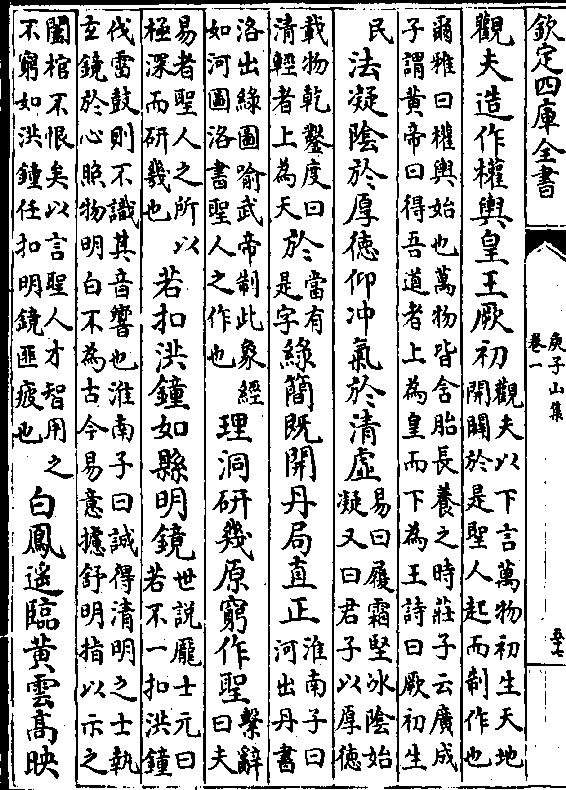 欽定四庫全書
庾子山集
卷一
觀夫造作權輿皇王厥初觀夫以下言萬物初生天地
開闢於是聖人起而制作也
爾雅曰權輿始也萬物皆含胎長養之時莊子云廣成
子謂黃帝曰得吾道者上為皇而下為王詩曰厥初生
民法凝陰於厚徳仰沖氣於清虛易曰履霜堅冰陰始
凝又曰君子以厚徳
載物乾鑿度曰
清輕者上為天於當有
是字緑簡既開丹局直正淮南子曰
河出丹書
洛出緑圖喻武帝制此象經
如河圖洛書聖人之作也理洞研幾原窮作聖繫辭
曰夫
易者聖人之所以
極深而研幾也若扣洪鐘如縣明鏡世説龎士元曰
若不一扣洪鐘
伐雷鼓則不識其音響也淮南子曰誠得清明之士執
玄鏡於心照物明白不為古今易意攄舒明指以示之
闔棺不恨矣以言聖人才智用之
不窮如洪鐘任扣明鏡匪疲也白鳳遥臨黃雲高映